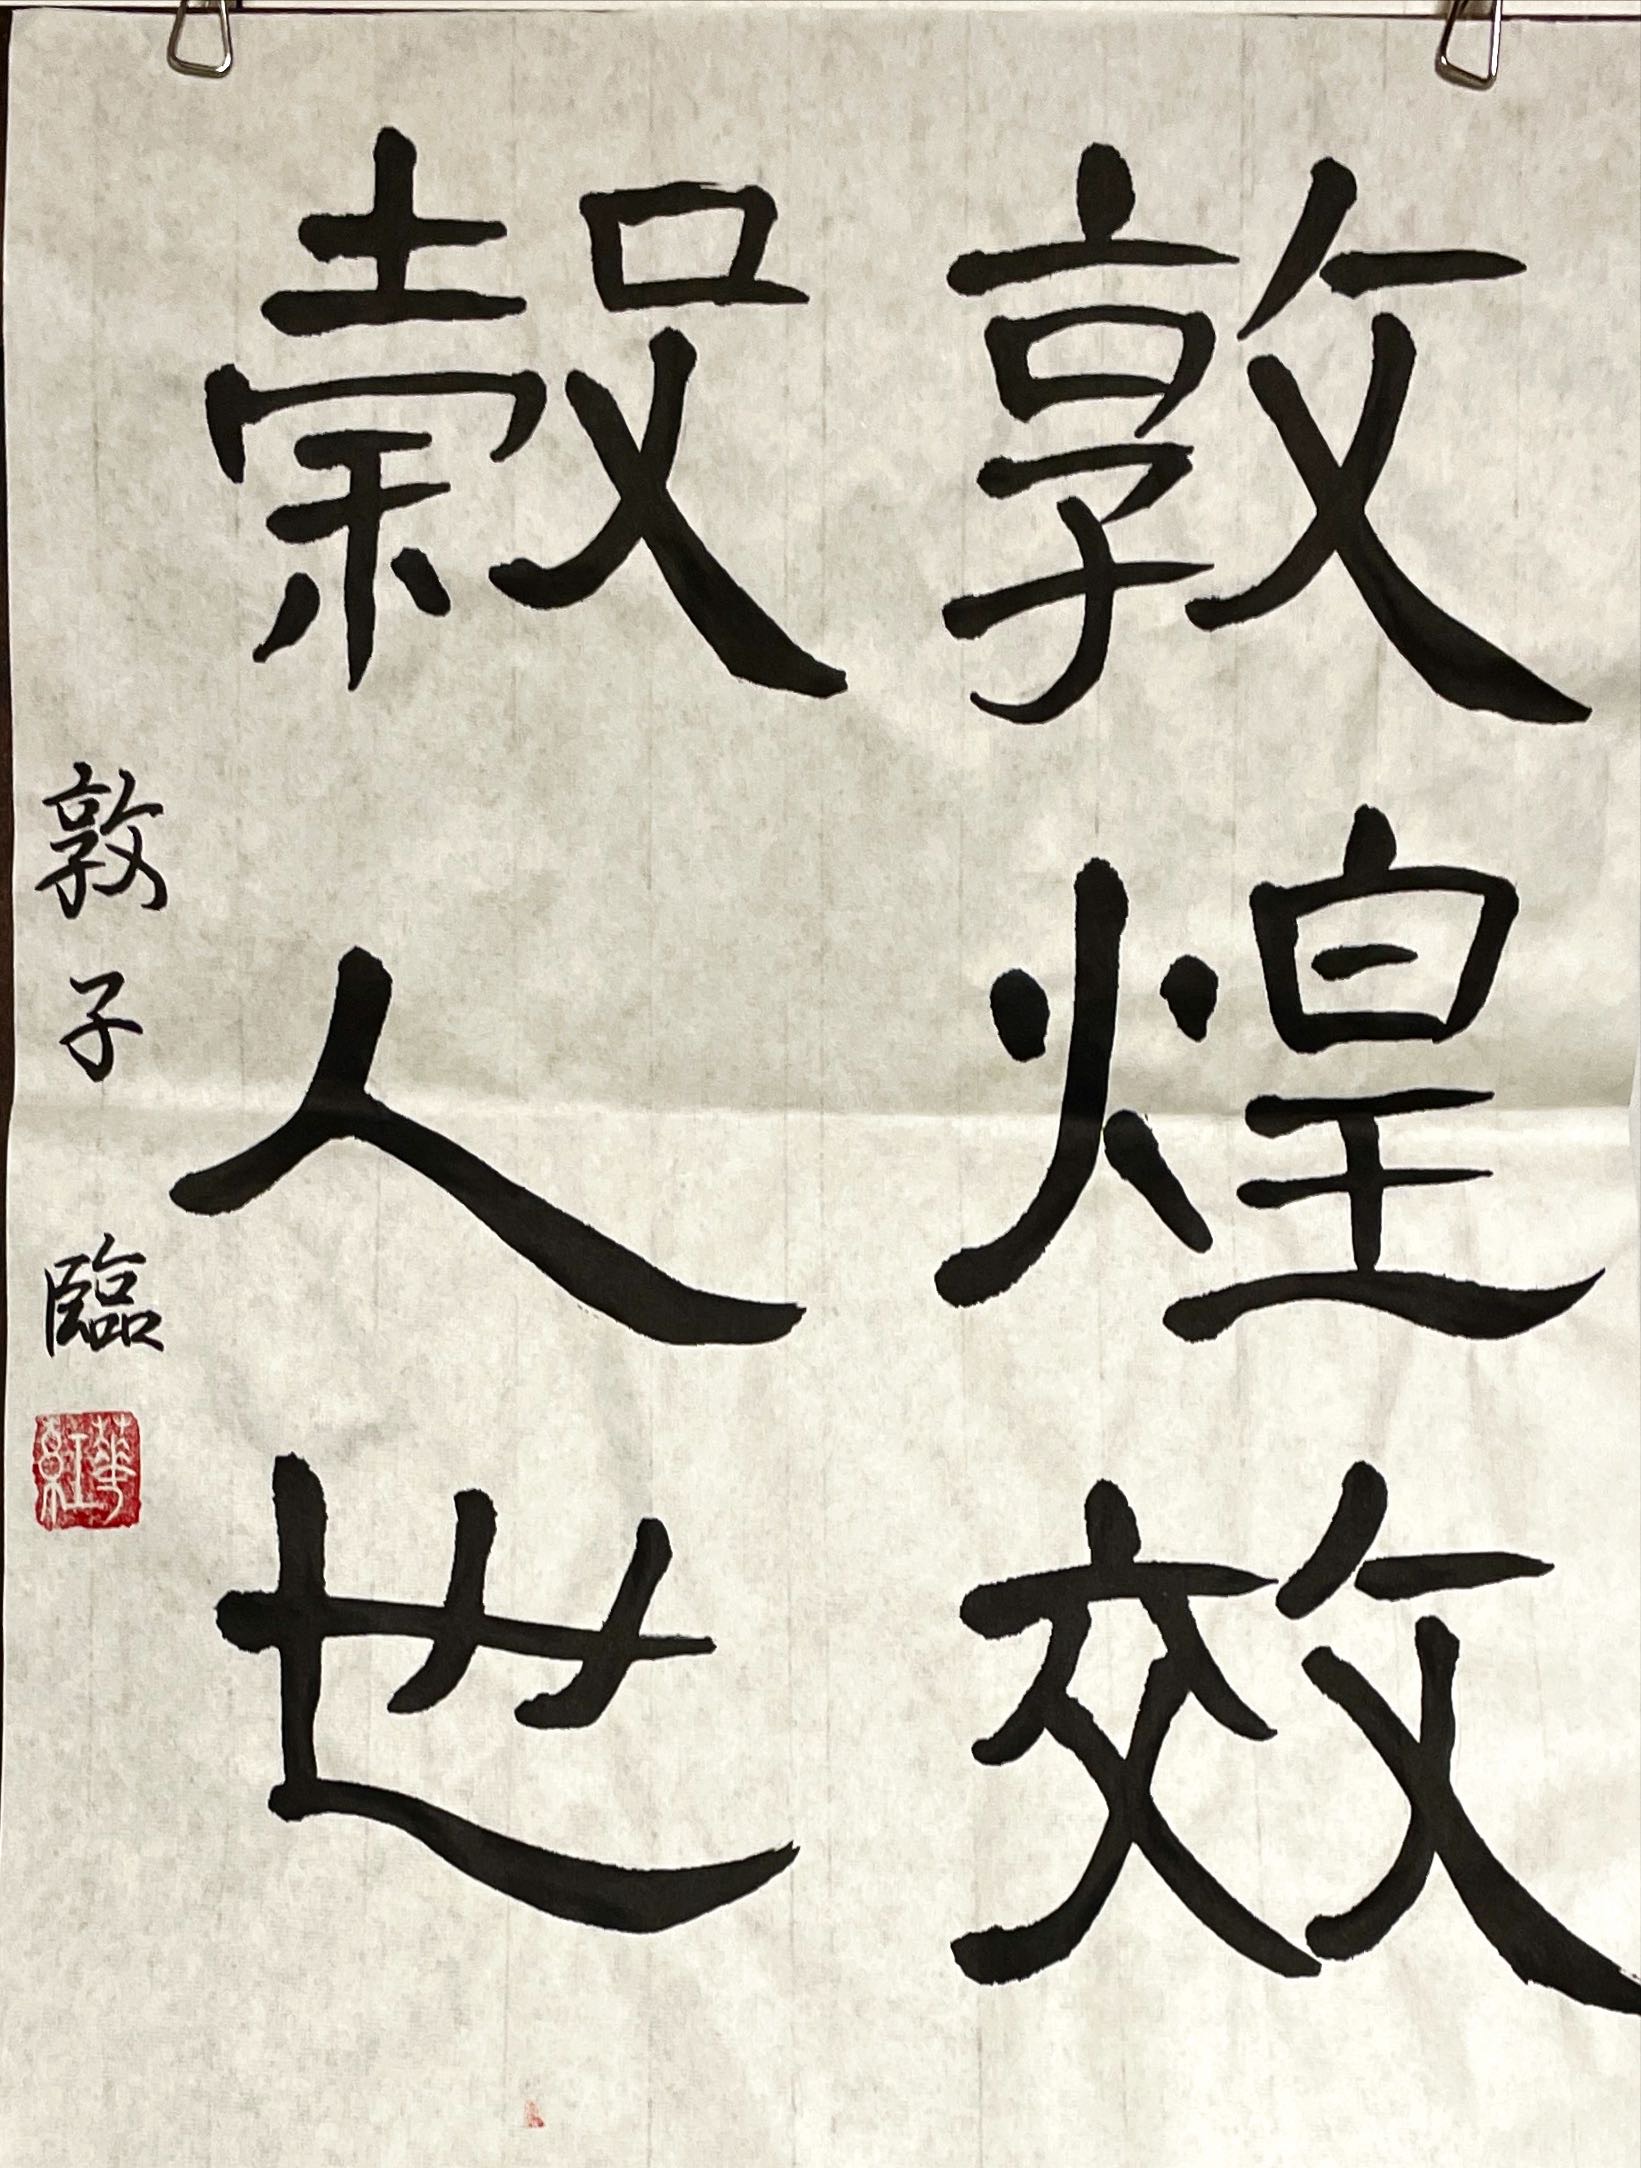 敦煌效
穀人世
敦子臨
華紅